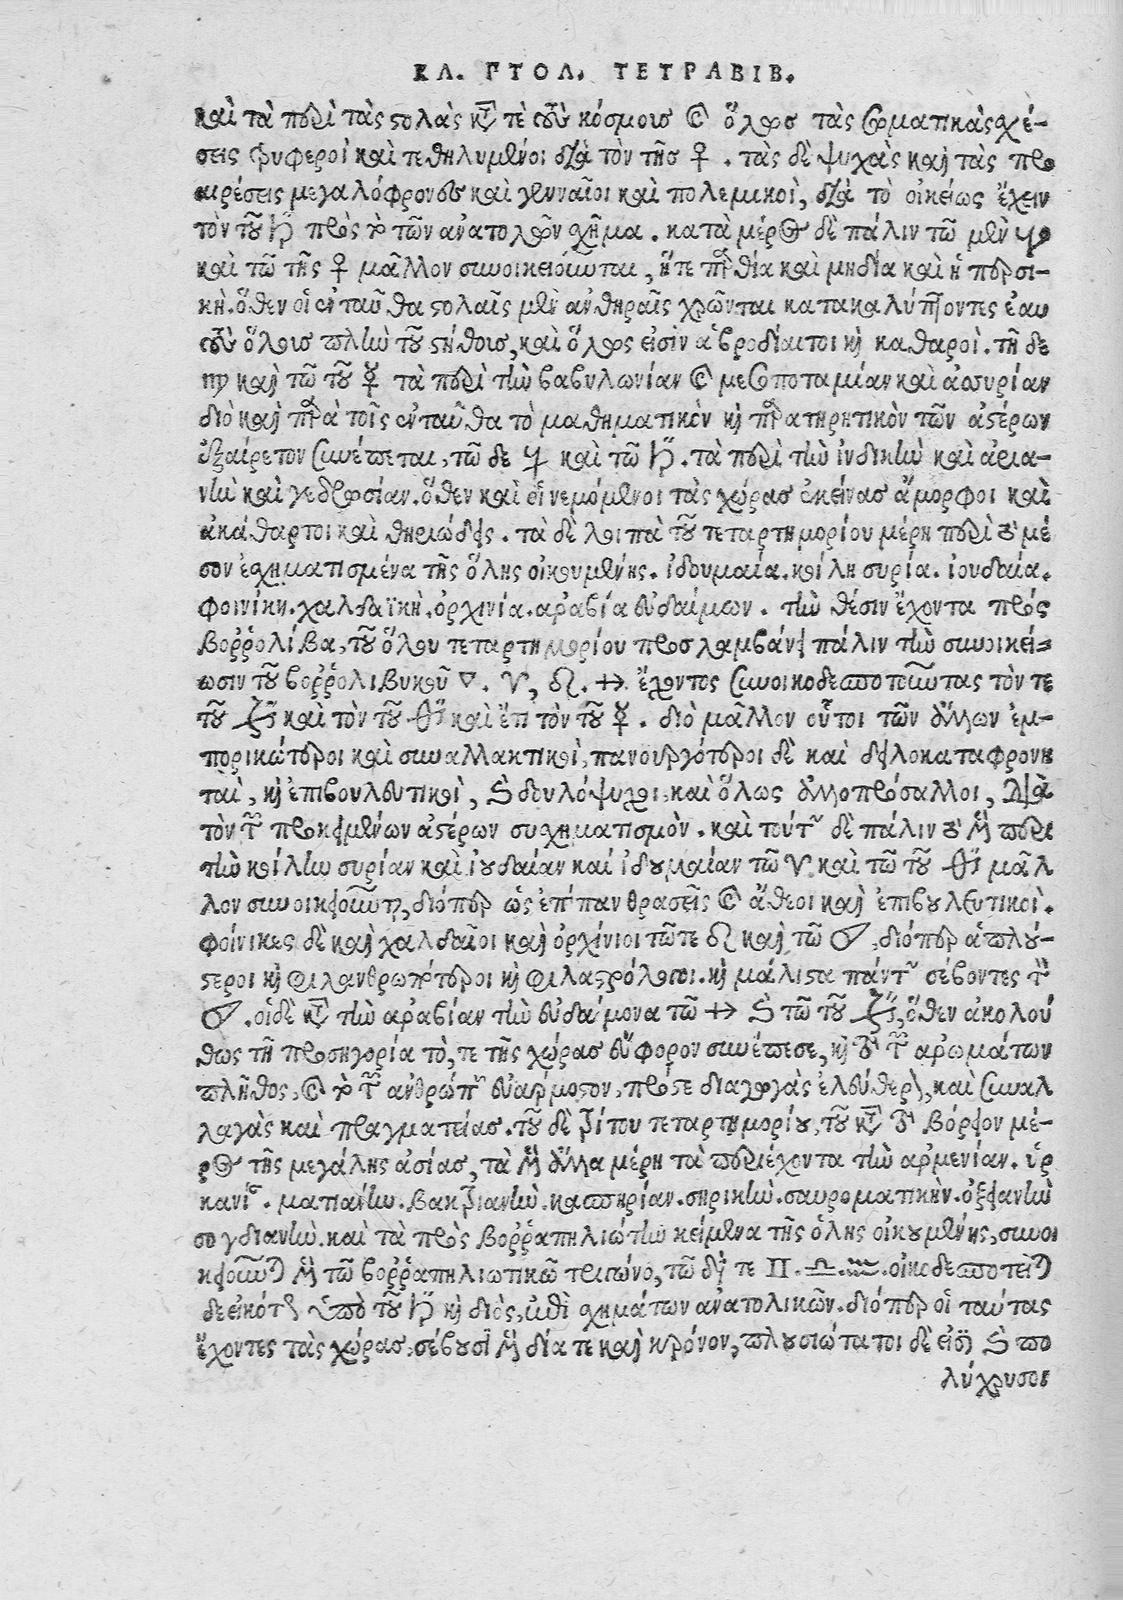 ΚΛ. ΠΤΟΛ. ΤΕΤΡΑΒΙΒ.
καὶ τὰ περὶ τὰς ςολὰς κ τὲ τοὺς κόσμους καὶ ὅλως τὰς σωματικὰς χέ-
σεις τρυφεροὶ καὶ τεθηλυμένοι διὰ τὸν τῆς ♀. τὰς δὲ ψυχὰς καὶ τὰς προ
αιρέσεις μεγαλόφρονες καὶ γενναῖοι καὶ πολεμικοὶ, διὰ τὸ οἰκείως ἔχειν
τὸν τοῦ ♄ πρὸς τὸ τῶν ἀνατολῶν χῆμα. κατὰ μέρος δὲ πάλιν τῶ μὲν ♉
καὶ τῶ τῆς ♀ μᾶλλον συνοικειοῦνται, ἥτε παρθία καὶ μηδία καὶ ἡ περσι-
κὴ. ὅθεν οἱ ἐνταῦθα ςολαῖς μὲν ἀνθηραῖς χρῶνται κατακαλύπτοντες ἑαυ
τοὺς ὅλους πλὴν τοῦ ςήθους, καὶ ὅλως εἰσὶν ἁβροδίαιτοι καὶ καθαροὶ. τῆ δε
♍ καὶ τῶ τοῦ ☿ τὰ περὶ τὴν βαβυλωνίαν καὶ μεσοποταμίαν καὶ ἀσσυρίαν
διὸ καὶ παρὰ τοῖς ἐνταῦθα τὸ μαθηματικὸν καὶ παρατηρητικὸν τῶν ἀςέρων
ἐξαίρετον συνέπεται, τῶ δε ♑ καὶ τῶ ♄. τὰ περὶ τὴν ἰνδικὴν καὶ ἀρια-
νὴν καὶ γεδρωσίαν. ὅθεν καὶ οἱ νεμόμενοι τὰς χώρας ἐκείνας ἄμορφοι καὶ
ἀκάθαρτοι καὶ θηριώδεις. τὰ δὲ λοιπὰ τοῦ τεταρτημορίου μέρη περὶ τὸ μέ
σον ἐχηματισμένα τῆς ὅλης οἰκουμένης. ἰδουμαία. κοίλη συρία. ἰουδαία.
φοινίκη. χαλδαϊκὴ. ὀρχινία. ἀραβία εὐδαίμων. τὴν θέσιν ἔχοντα πρὸς
βορρόλιβα, τοῦ ὅλου τεταρτημορίου προσλαμβάνει πάλιν τὴν συνοικεί-
ωσιν τοῦ βορρολιβυκοῦ ▽. ♈, ♌. ♐ ἔχοντος συνοικοδεσποτοῦντας τὸν τε
τοῦ ♃ καὶ τὸν τοῦ ♂ καὶ ἔτι τὸν τοῦ ☿. διὸ μᾶλλον οὗτοι τῶν ἄλλων ἐμ-
πορικώτεροι καὶ συναλλακτικοὶ, πανουργότεροι δὲ καὶ δειλοκαταφρονη
ταὶ, καὶ ἐπιβουλευτικοὶ, καὶ δουλόψυχοι, καὶ ὅλως ἀλλοπρόσαλλοι, διὰ
τὸν τῶν προκειμένων ἀςέρων συχηματισμὸν. καὶ τούτων δὲ πάλιν οἱ μὲν περι
τὴν κοίλην συρίαν καὶ ἰουδαίαν καὶ ἰδουμαίαν τῶ ♈ καὶ τῶ τοῦ ♂ μᾶλ
λον συνοικειοῦνται, διόπερ ὡς ἐπίπαν θρασεῖς καὶ ἄθεοι καὶ ἐπιβουλευτικοὶ.
φοίνικες δὲ καὶ χαλδαῖοι καὶ ὀρχίνιοι τῶ τε ♌ καὶ τῶ ☉, διόπερ ἁπλού-
ςεροι καὶ φιλανθρωπότεροι καὶ φιλαςρόλογοι. καὶ μάλιςα πάντων σέβοντες τὸν
☉. οἱ δὲ κατὰ τὴν ἀραβίαν τὴν εὐδαίμονα τῶ ♐ καὶ τῶ τοῦ ♃, ὅθεν ἀκολού
θως τῆ προσηγορία τό, τε τῆς χώρας εὔφορον συνέπεσε, καὶ τὸ τῶν ἀρωμάτων
πλῆθος, καὶ τὸ τῶν ἀνθρώπων εὐάρμοςον, πρός τε διαγωγὰς ἐλευθέρων, καὶ συναλ
λαγὰς καὶ πραγματείας. τοῦ δὲ τρίτου τεταρτημορίου, τοῦ κατὰ τὸ βόρειον μέ-
ρος τῆς μεγάλης ἀσίας, τὰ μὲν ἄλλα μέρη τὰ περιέχοντα τὴν ἀρμενίαν. ὑρ
κανίαν. ματιανὴν. βακτριανὴν. κασπηρίαν. σηρικὴν. σαυροματικὴν. ὀξειανὴν
σογδιανὴν. καὶ τὰ πρὸς βορραπηλιώτην κείμενα τῆς ὅλης οἰκουμένης, συνοι
κειοῦται μὲν τῶ βορραπηλιωτικῶ τριγώνω, τῶ δή τε ♊. ♎. ♒. οἰκοδεσποτεῖται
δε εἰκότως ὑπὸ τοῦ ♄ καὶ διὸς, ἐπὶ χημάτων ἀνατολικῶν. διόπερ οἱ ταύτας
ἔχοντες τὰς χώρας, σέβουσι μὲν δία τε καὶ κρόνον, πλουσιώτατοι δὲ εἰσὶ καὶ πο
λύχρυσοι